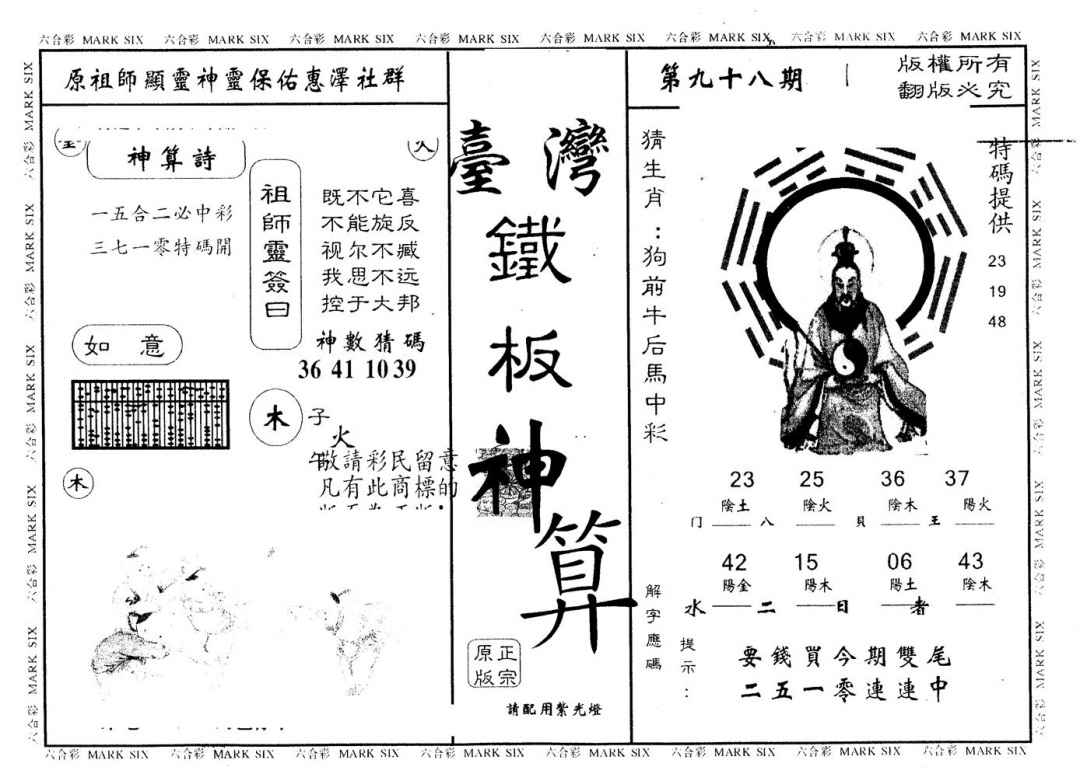 六合彩 MARK SIX 六合彩 MARK SIX 六合彩 MARK SIX 六合彩 MARK SIX 六合彩 MARK SIX 六合彩 MARK SIX 六合彩 MARK SIX 六合彩 MARK SIX
原祖師顯靈神靈保佑惠澤社群
火
神算詩
一五合二必中彩
三七一零特碼開
祖師靈簽曰
既不它喜
不能旋反
视尔不臧
我思不远
控于大邦
神數猜碼
36 41 10 39
如意
木
子
火
午
敬請彩民留意
凡有此商標的
木
臺灣
鐵
板
神
算
正宗
原版
請配用紫光燈
第九十八期
版權所有
翻版必究
猜生肖：狗前牛后馬中彩
特碼提供
23
19
48
23 25 36 37
陰土 陰火 陰木 陽火
门 八 貝 王
42 15 06 43
陽金 陽木 陽土 陰木
水 二 日 者
解字應碼
提示：
要錢買今期雙尾
二五一零連連中
六合彩 MARK SIX 六合彩 MARK SIX 六合彩 MARK SIX 六合彩 MARK SIX 六合彩 MARK SIX 六合彩 MARK SIX 六合彩 MARK SIX 六合彩 MARK SIX
六合彩 MARK SIX 六合彩 MARK SIX 六合彩 MARK SIX 六合彩 MARK SIX 六合彩 MARK SIX
六合彩 MARK SIX 六合彩 MARK SIX 六合彩 MARK SIX 六合彩 MARK SIX 六合彩 MARK SIX